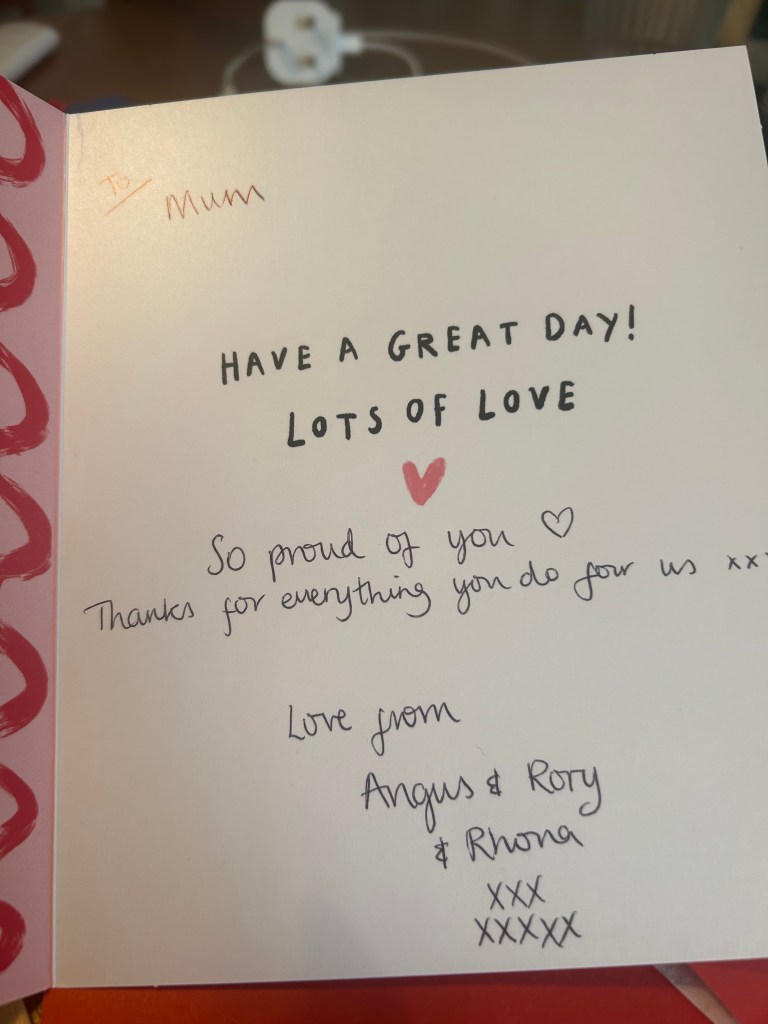 To
Mum
HAVE A GREAT DAY!
LOTS OF LOVE
So proud of you ♡
Thanks for everything you do four us xxx
Love from
Angus & Rory
& Rhona
xxx
xxxxx